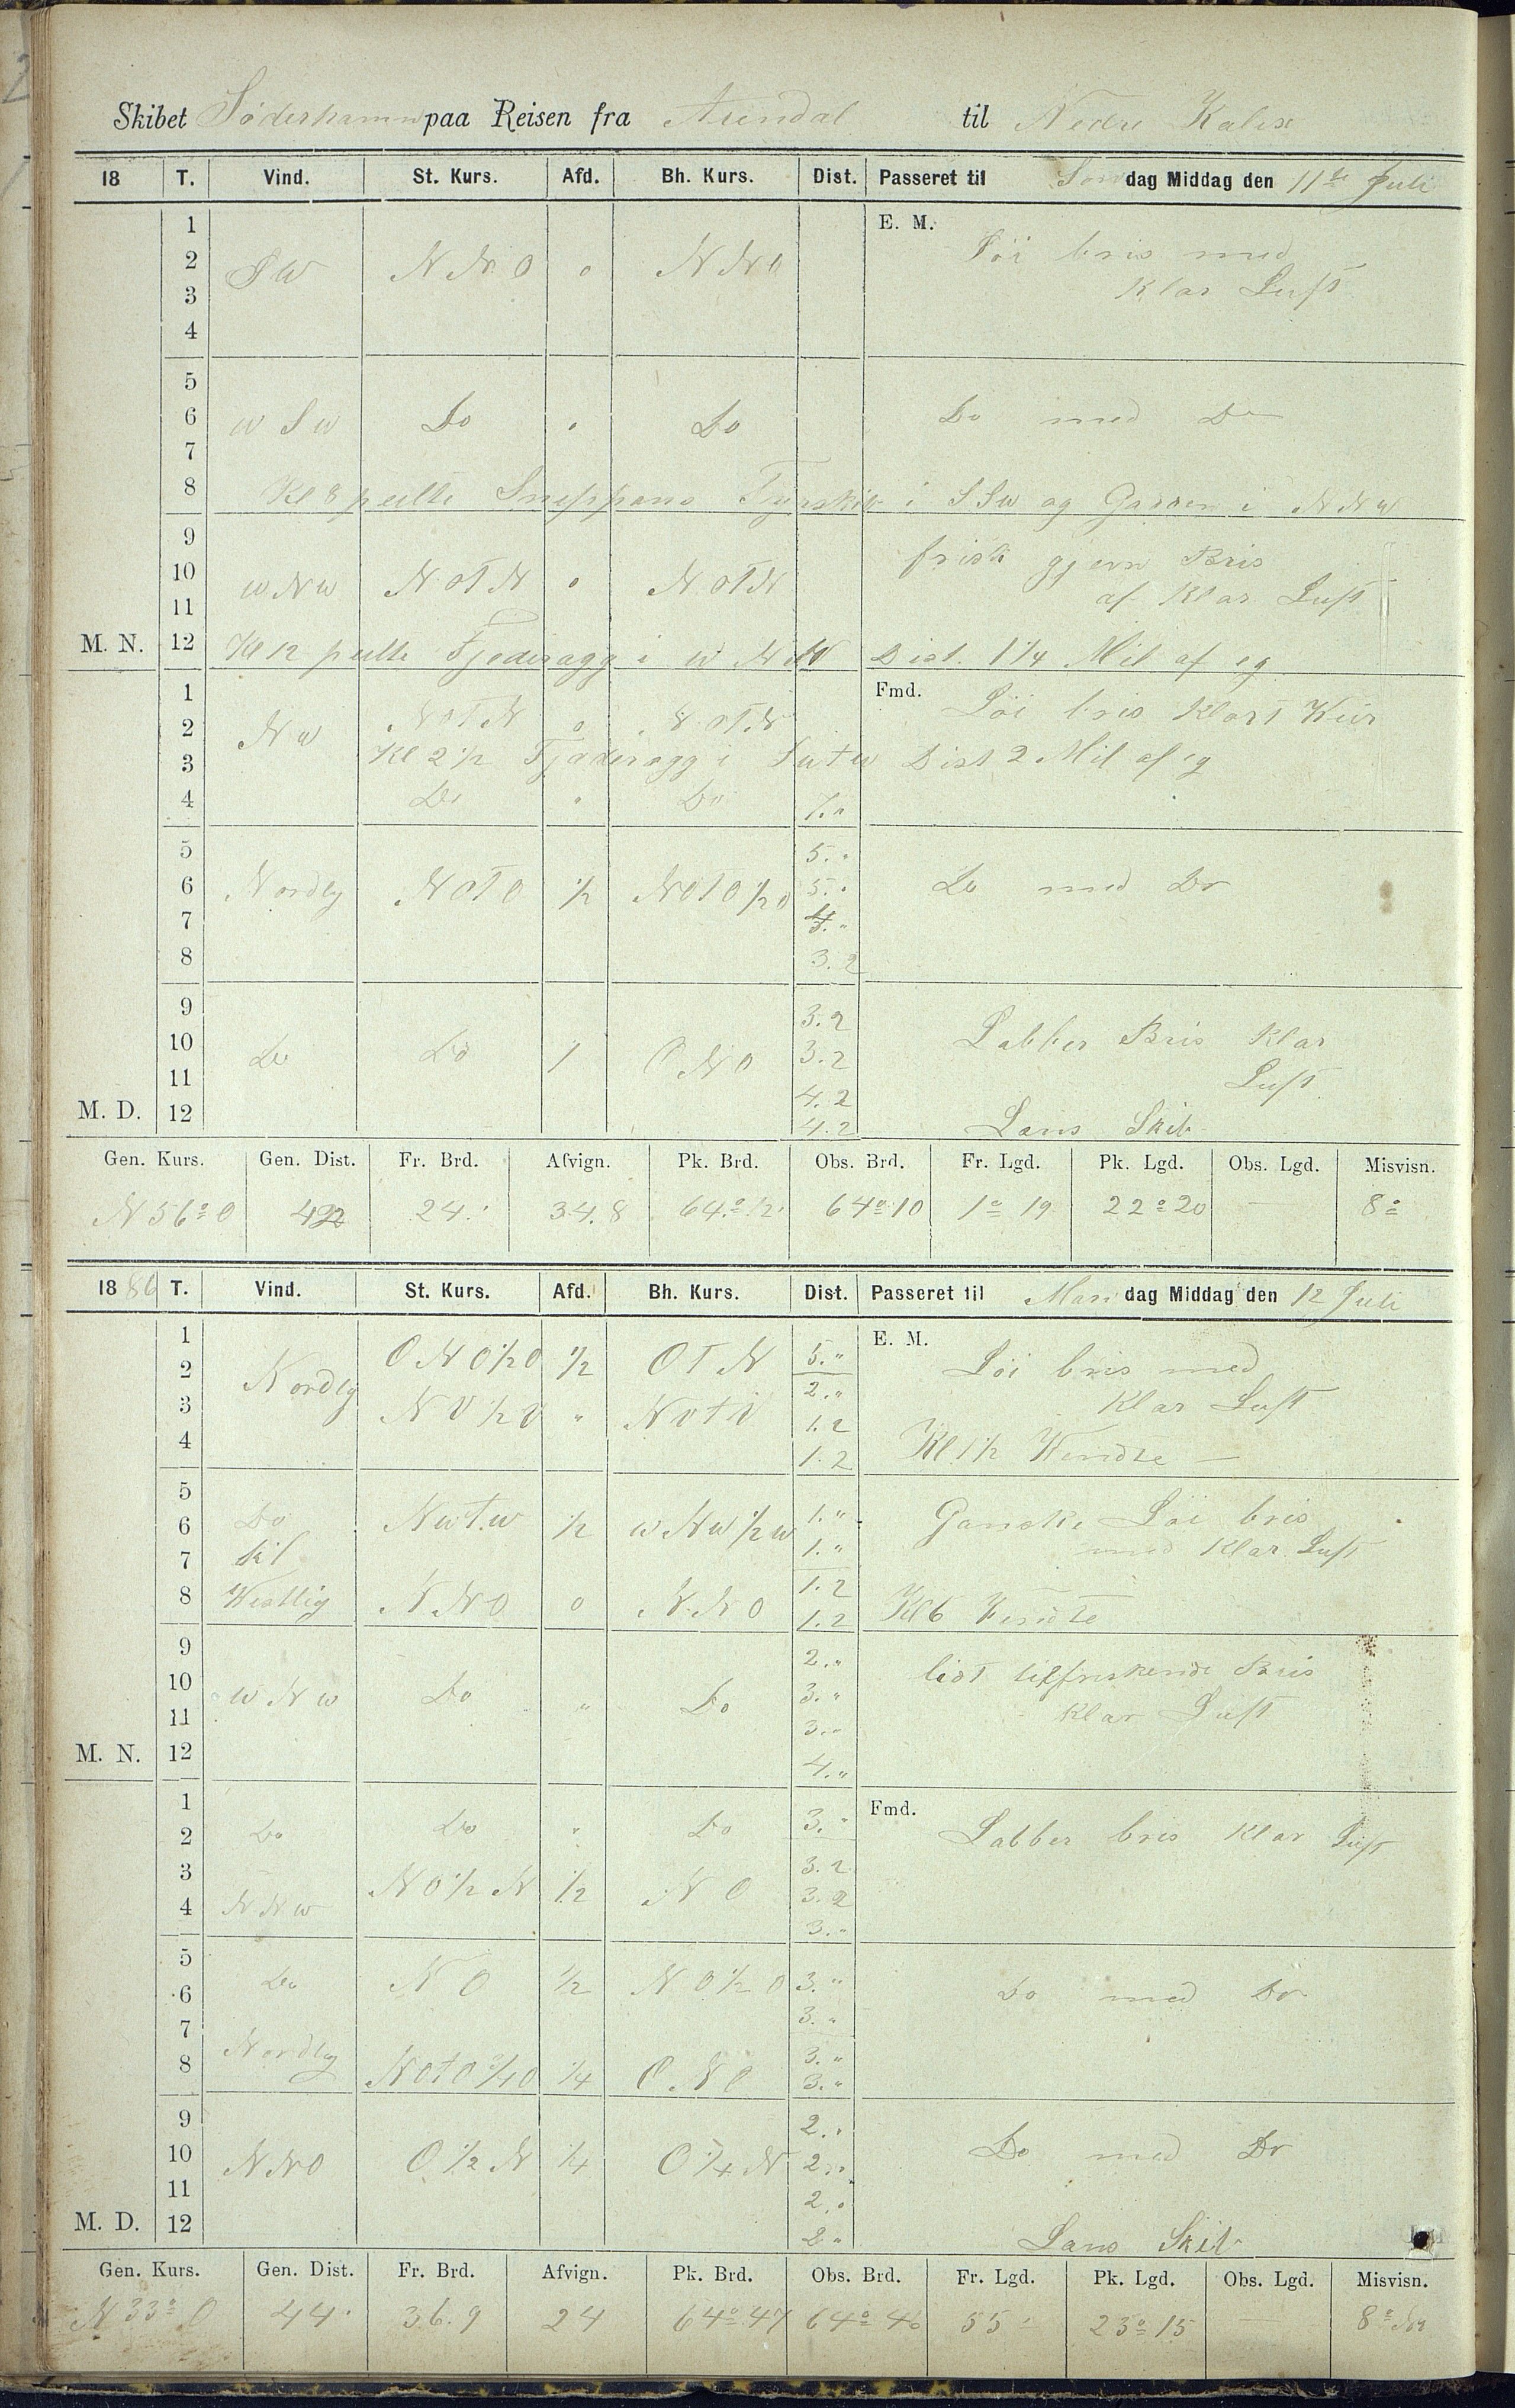 Skibet Söderhamn paa Reisen fra Arendal til Nedre Kalix
18 T. Vind. St. Kurs. Afd. Bh. Kurs. Dist. Passeret til Søndag Middag den 11te Juli
1 E. M.
2 SW NNO 0 NNO Löi bris med
3 Klar Luft
4
5
6 WSW Do " Do Do med Do
7
8 Kl 8 peilte Snippans Fyrskib i SSW og Gadden i NNW
9 frisk gjevn Bris
10 WNW NOTN 0 NOTN af Klar Luft
11
M. N. 12 Kl 12 peilte Fjederagg i W Dist. 1 1/4 Mil af eg
1 Fmd. Löi bris Klart Veir
2 NW NOTN 0 NOTN
3 Kl 2 1/2 Fjæderagg i SwtW Dist 2 Mil af eg
4 Do " Do 7."
5 5."
6 Nordlig NOTO 1/2 NOTO 1/2 O 5." Do med Do
7 4."
8 3.2
9 3.2
10 Do Do 1 ONO 3.2 Labber Bris Klar
11 4.2 Luft
M. D. 12 4.2 Lens Skib
Gen. Kurs. Gen. Dist. Fr. Brd. Afvign. Pk. Brd. Obs. Brd. Fr. Lgd. Pk. Lgd. Obs. Lgd. Misvisn.
N 56° O 42 24.' 34.8 64° 12' 64° 10 1° 19 22° 20 — 8°
1886 T. Vind. St. Kurs. Afd. Bh. Kurs. Dist. Passeret til Mandag Middag den 12 Juli
1 ONO 1/2 O 1/2 OTN 5." E. M.
2 Nordlig 2." Löi bris med
3 NO 1/2 O " NOtO 1.2 Klar Luft
4 1.2 Kl 1 1/2 Vendte —
5
6 Do NWT.W 1/2 WNW 1/2 W 1." Ganske Löi bris
7 til 1." med Klar Luft
8 Westlig NNO 0 NNO 1.2 1.2 Kl 6 Vendte
9 2." lidt tilfriskende Bris
10 WNW Do " Do 3." Klar Luft
11 3."
M. N. 12 4."
1 Fmd.
2 Do Do " Do 3." Labber bris Klar Luft
3 3.2
4 NNW NO 1/2 N 1/2 NO 3.2 3."
5
6 Do NO 1/2 NO 1/2 O 3." Do med Do
7 3."
8 Nordlig NOtO 3/4 O 1/4 ONO 3." 3."
9 2."
10 NNO O 1/2 N 1/4 O 1/4 N 2." Do med Do
11 2."
M. D. 12 2." Lens Skib
Gen. Kurs. Gen. Dist. Fr. Brd. Afvign. Pk. Brd. Obs. Brd. Fr. Lgd. Pk. Lgd. Obs. Lgd. Misvisn.
N 33° O 44' 36.9 24 64° 47 64° 46 55' 23° 15 — 8°